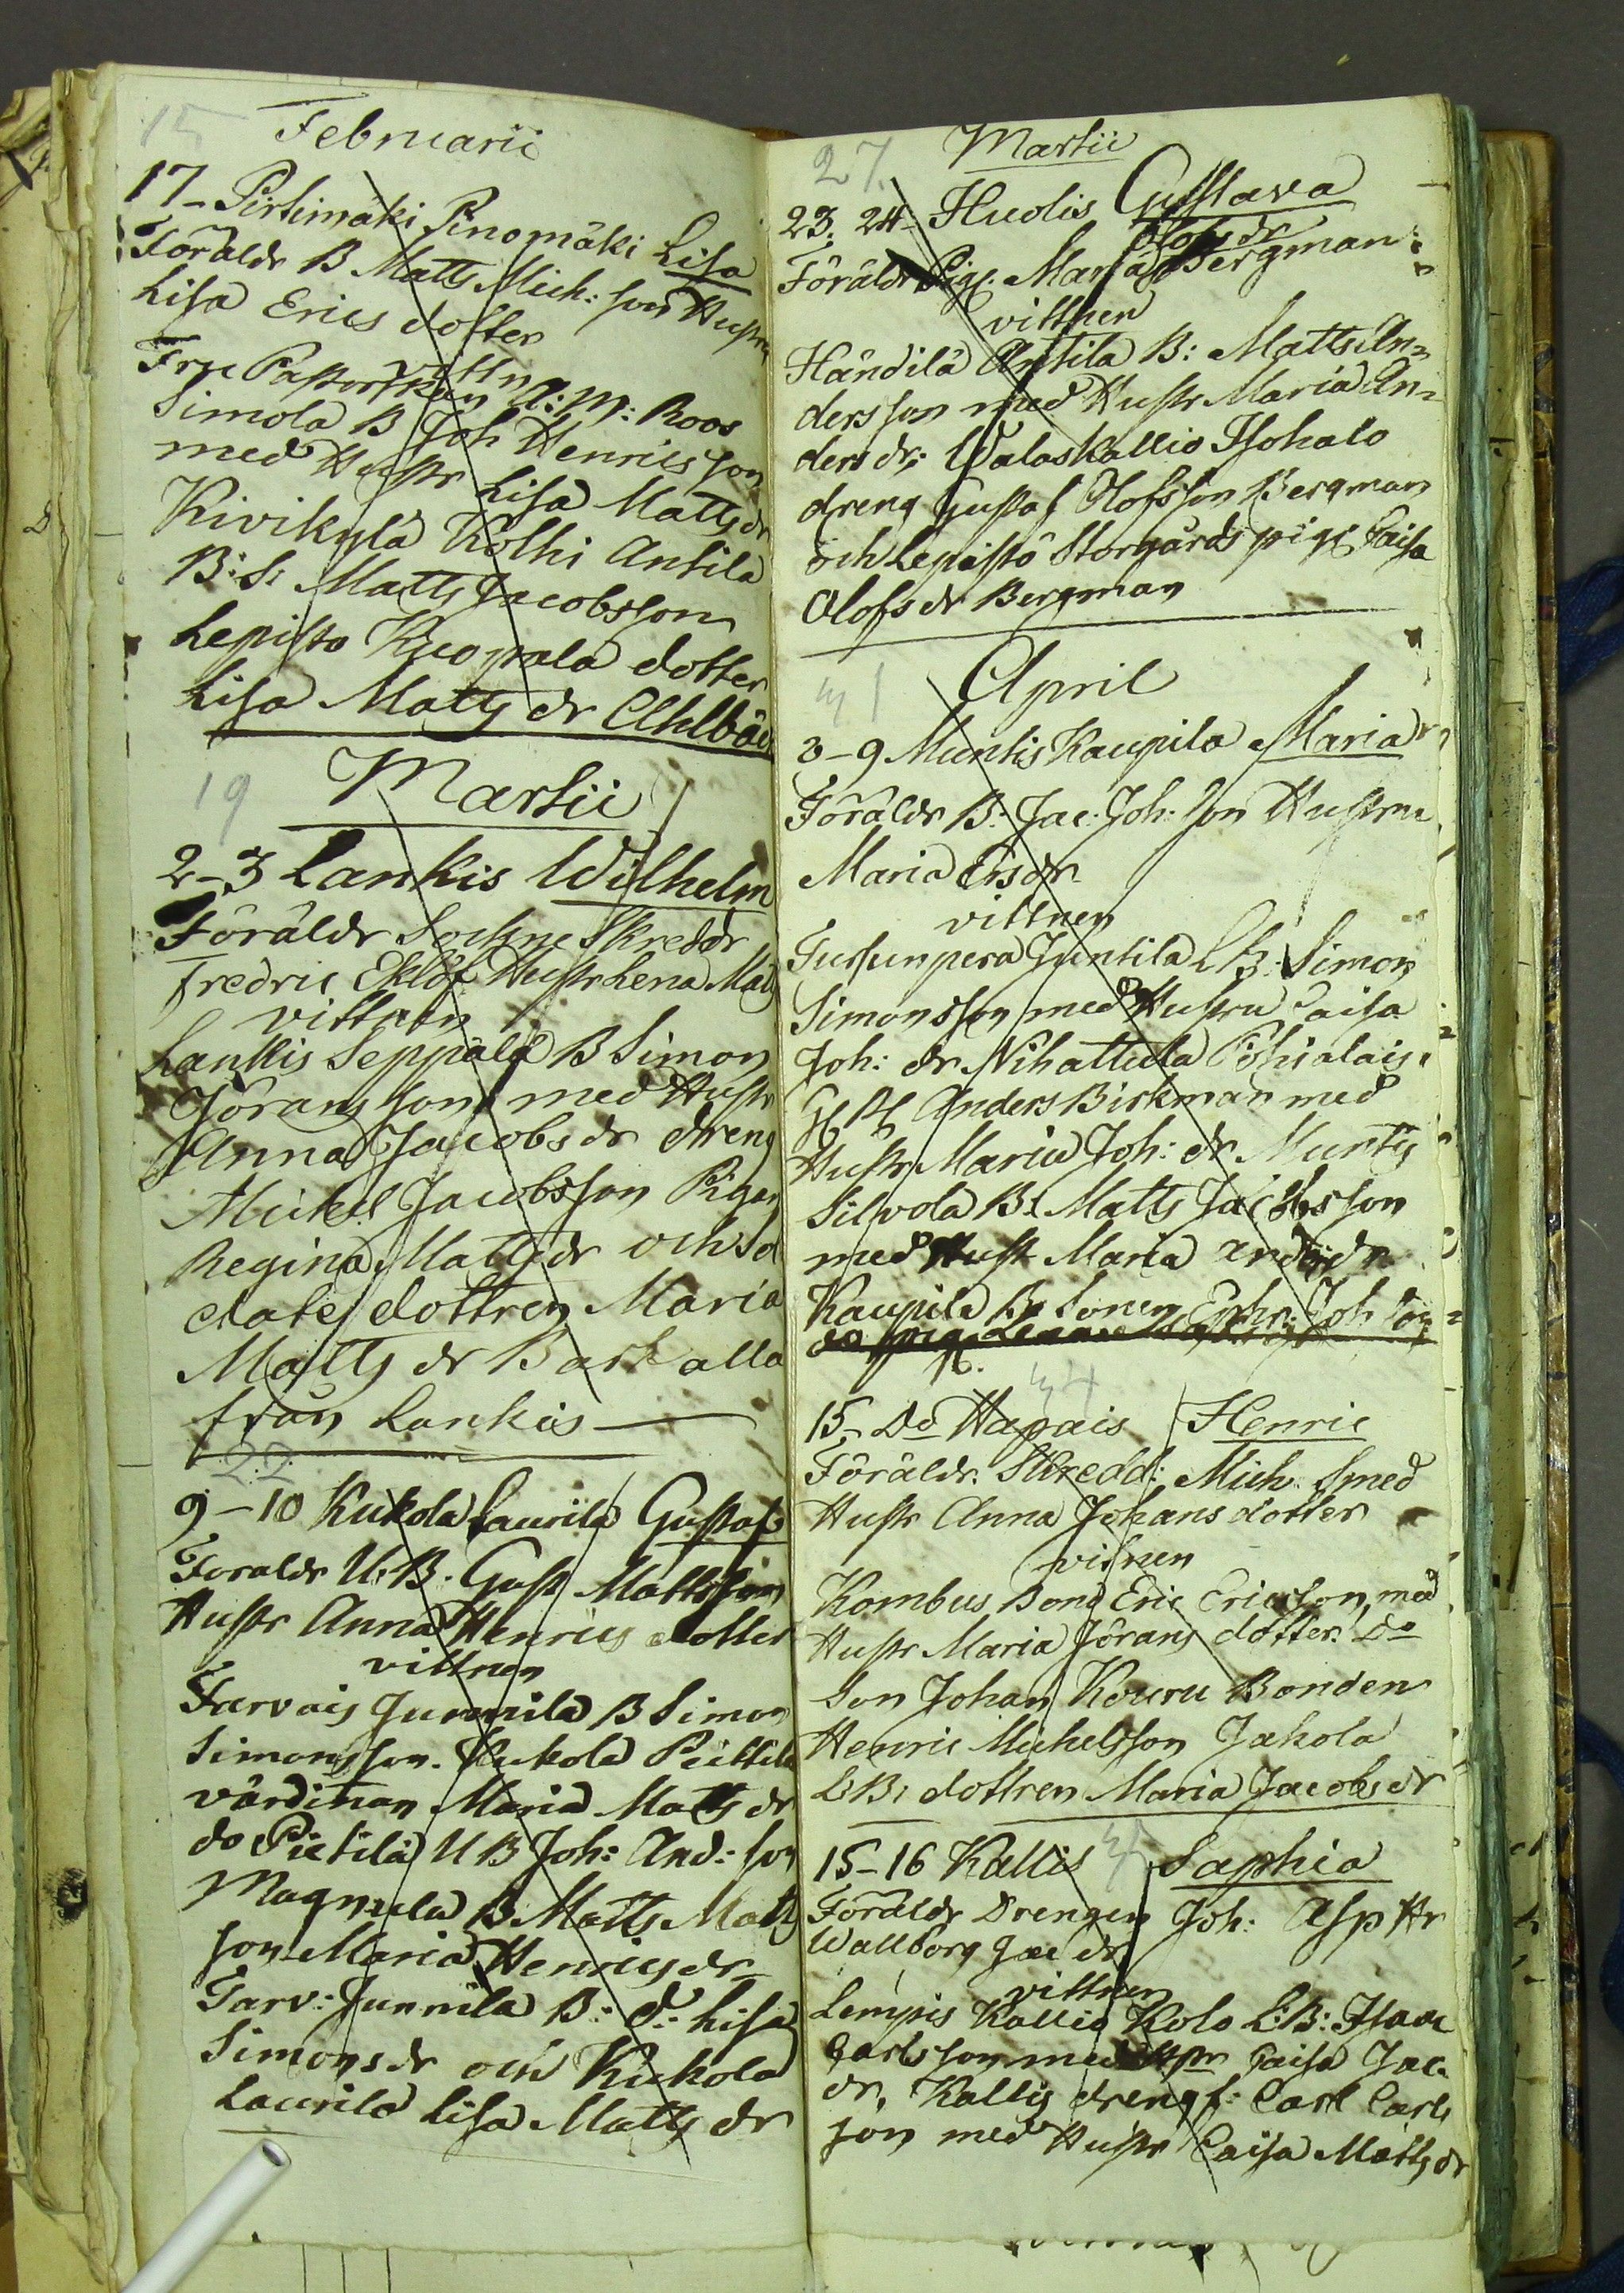 15 Februarii
17 - Pirtimäki Pinomäki Lisa
Föräldr B Matts Mich: son Hustru
Lisa Erics dotter
vittn
Fru Pastorskan A: M: Roos
Simola B Joh Henricsson
med Hustr Lisa Mattsdr
Kivikylä Kolhi Antila
B: S: Matts Jacobsson
Lepisto Kuopala dotter
Lisa Matts dr Ahlbäck
19 Martii
2-3 Lankis Wilhelm
Föräldr Sockne Skreddr
Fredric Eklöf Hustr Lena Matts
vittnen
Lankis Seppälä B Simon
Jöransson med Hustr
Anna Jacobs dr dreng
Mickel Jacobsson Pigan
Regina Matts dr och sol
date dottren Maria
Matts dr Bark alla
från Lankis
22
9-10 Kukola Laurila Gustaf
Foraldr U: B. Gust Mattsson
Hustr Anna Henrics dotter
vittnen
Tarvais Junnila B Simon
Simonsson. Kukola Pietilä
värdinan Maria Matts dr
do Pietilä U B Joh: And: son
Magnula B Matts Matts
son Maria Henrics dr
Tarv: Junnila B: d: Lisa
Simons dr och Kukola
Laurila Lisa Matts dr
27 Martii
23. 24 - Huolis Gustava
Olofs dr
Föräldr Pig. Maria Bergman
vittnen
Händilä Antila B: Matts An=
dersson med Hustr Maria An=
ders dr; Walaskallio Isohalo
dreng Gustaf Olofsson Bergman
och Lepistö Storgårds pig Caisa
Olofs dr Bergman
April
3-9 Muntis Kaupila Maria
Föräldr B: Jac: Joh: son Hustru
Maria Ersdr
vittnen
Tursunpera Juntila L B: Simon
Simonsson med Hustru Caisa
Joh: dr Nihattula Pohialais
Anders Birkman med
Hustr Maria Joh: dr Muntis
Silvola B: Matts Jacobsson
med Hust Maria andersdr
Kaupila B: sonen Ephr: Joh son
15 - Do Hapais Henric
Föräldr. Skredd: Mich: Smed
Hustr Anna Johans dotter
vitnen
Kombus Bond Eric Ericsson med
Hustr Maria Jörans dotter. Do
son Johan Kouru Bonden
Henric Michelsson Jakola
L: B: dottren Maria Jacobs dr
15-16 Kallis Saphia
Föräldr Drengen Joh: Asp Hr
Wallborg Jac dr
vittnen
Lempis Kallio Kolo L: B: Isaac
Carlsson med Hustr Caisa Jac.
dr, Kallis dreng: Carl Carls
son med Hustr Caisa Matts dr